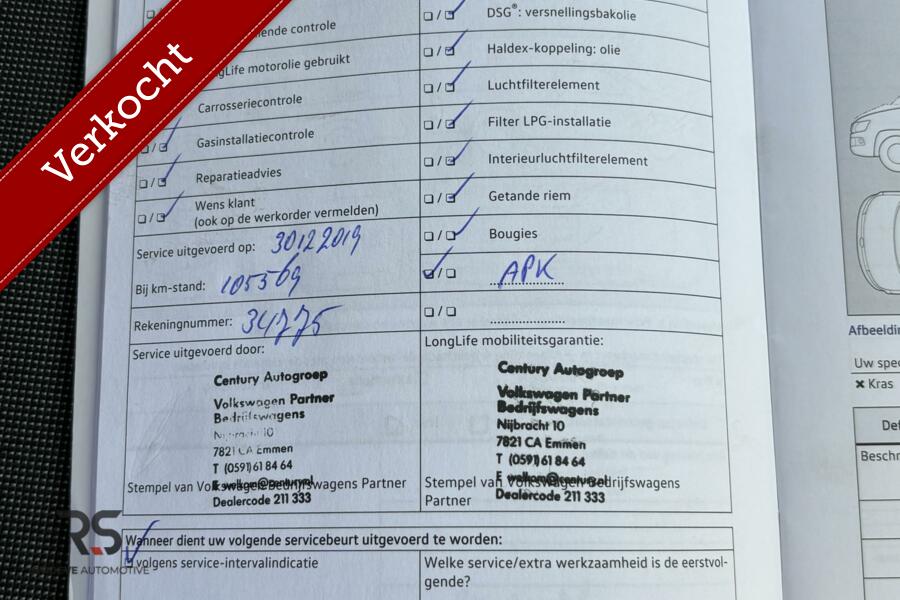 Verkocht
ende controle
gLife motorolie gebruikt
Carrosseriecontrole
Gasinstallatiecontrole
Reparatieadvies
Wens klant
(ook op de werkorder vermelden)
Service uitgevoerd op: 30122019
Bij km-stand: 105569
Rekeningnummer: 34775
Service uitgevoerd door:
Century Autogroep
Volkswagen Partner
Bedrijfswagens
Nijbracht 10
7821 CA Emmen
T (0591) 61 84 64
E welkom@century.nl
Stempel van Volkswagen Bedrijfswagens Partner
Dealercode 211 333
DSG®: versnellingsbakolie
Haldex-koppeling: olie
Luchtfilterelement
Filter LPG-installatie
Interieurluchtfilterelement
Getande riem
Bougies
APK
LongLife mobiliteitsgarantie:
Century Autogroep
Volkswagen Partner
Bedrijfswagens
Nijbracht 10
7821 CA Emmen
T (0591) 61 84 64
E welkom@century.nl
Stempel van Volkswagen Bedrijfswagens
Partner
Dealercode 211 333
Wanneer dient uw volgende servicebeurt uitgevoerd te worden:
volgens service-intervalindicatie
Welke service/extra werkzaamheid is de eerstvol-
gende?
Afbeeldin
Uw spe
Kras
Def
Beschr
RS
AUTOMOTIVE